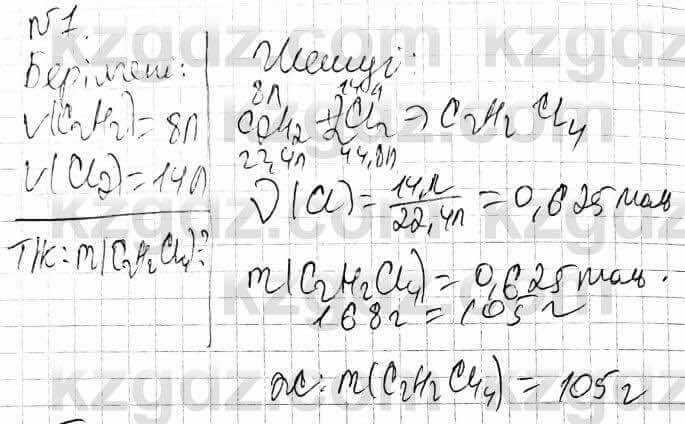 N1.
Берілгені:
V(C₂H₂)=8л
V(Cl₂)=14л
Т/К: m(C₂H₂Cl₄)?
Шешуі:
8л 14л
C₂H₂+2Cl₂→C₂H₂Cl₄
22,4л 44,8л
ν(Cl)=14л/22,4л=0,625моль
m(C₂H₂Cl₄)=0,625моль·
168г=105г
Ж: m(C₂H₂Cl₄)=105г
kzgdz.com